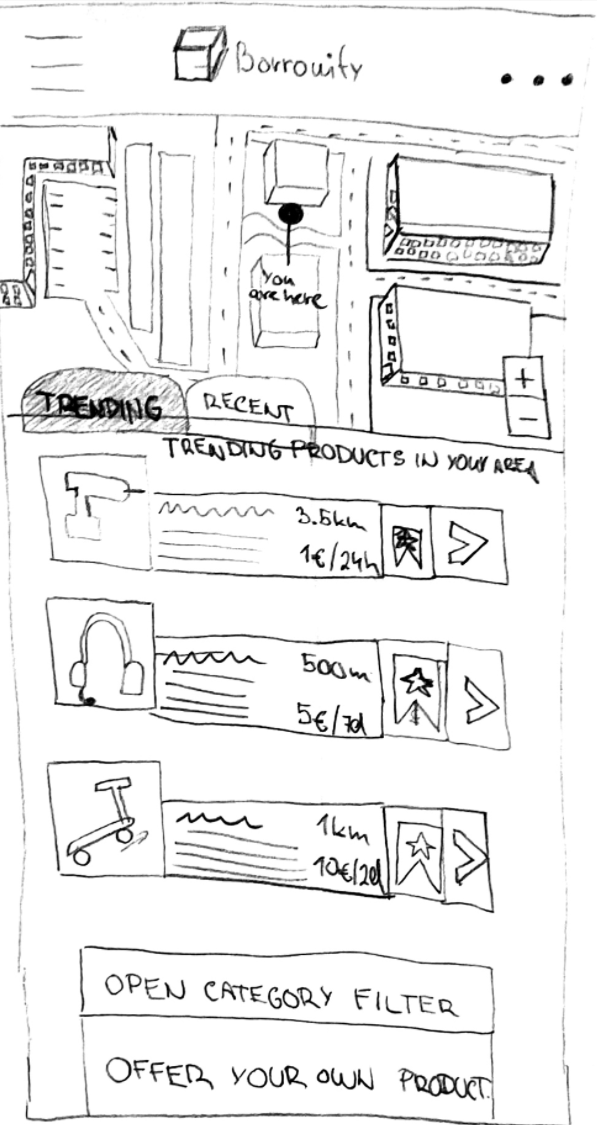 Borrowity
You
are here
+
−
TRENDING
RECENT
TRENDING PRODUCTS IN YOUR AREA
3.5km
1€/24h
500m
5€/7d
1km
10€/2d
OPEN CATEGORY FILTER
OFFER YOUR OWN PRODUCT